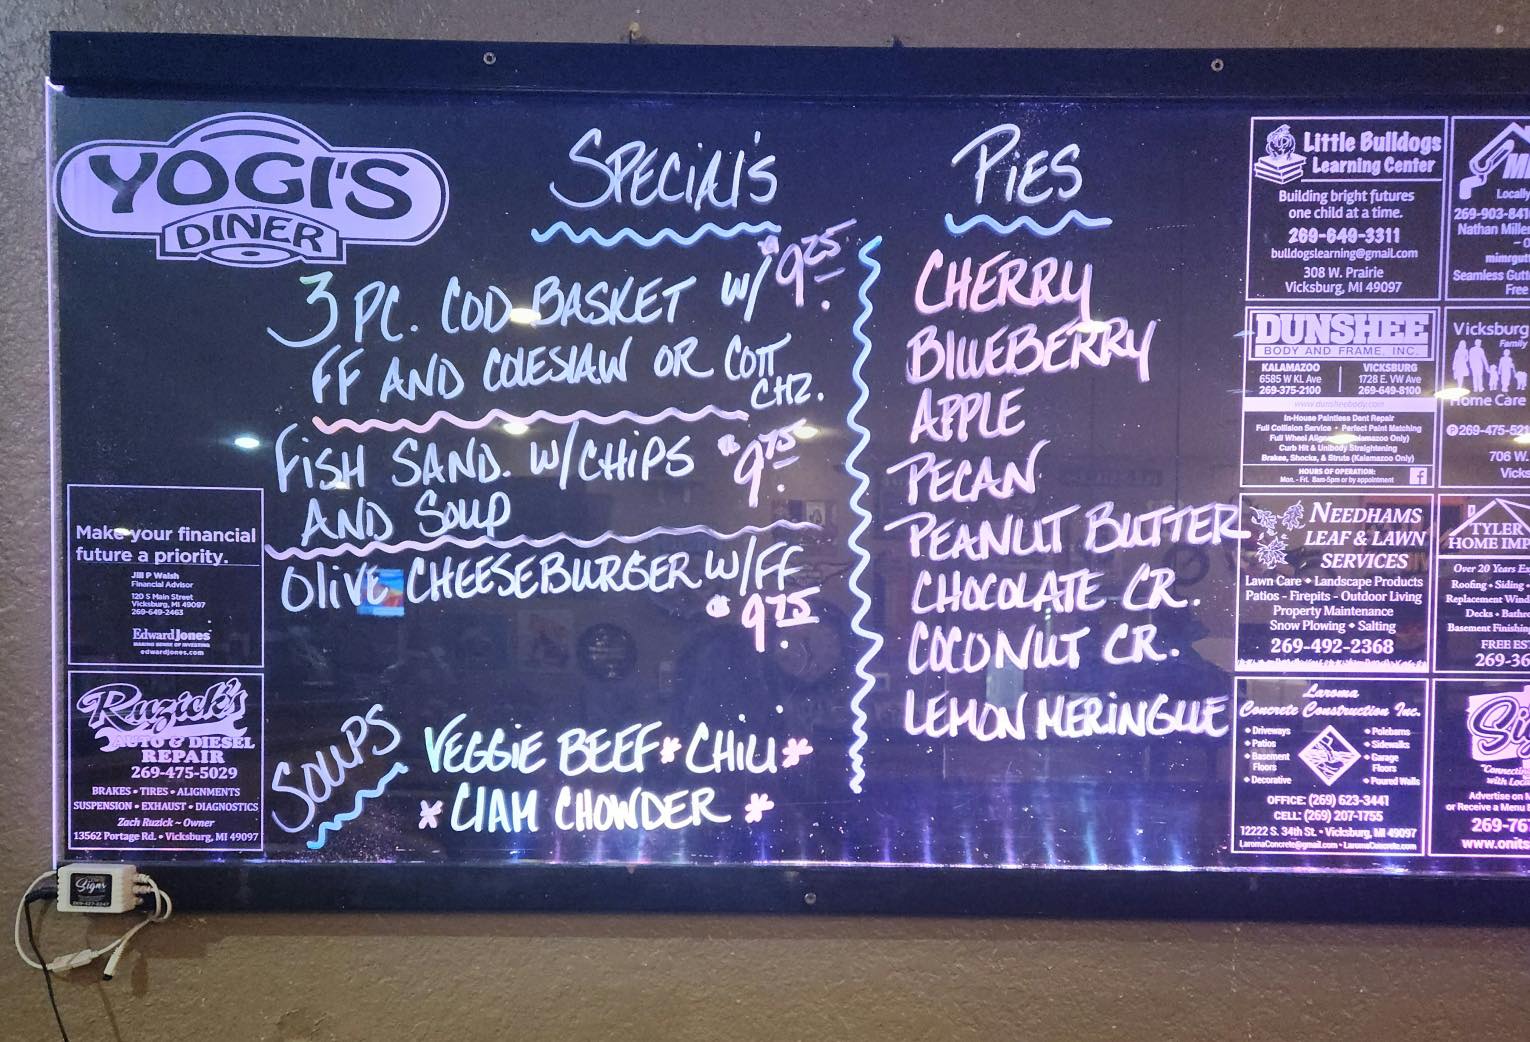 YOGI'S
DINER
SPECIAL'S
$9.25
3 PC. COD BASKET W/
FF AND COLESLAW OR COTT
CHZ.
FISH SAND. W/CHIPS $9.75
AND SOUP
OLIVE CHEESEBURGER W/FF
$9.75
SOUPS
VEGGIE BEEF * CHILI *
* CLAM CHOWDER *
PIES
CHERRY
BLUEBERRY
APPLE
PECAN
PEANUT BUTTER
CHOCOLATE CR.
COCONUT CR.
LEMON MERINGUE
Make your financial
future a priority.
Jill P Walsh
Financial Advisor
120 S Main Street
Vicksburg, MI 49097
269-649-2463
Edward Jones
MAKING SENSE OF INVESTING
edwardjones.com
Ruzick's
AUTO & DIESEL
REPAIR
269-475-5029
BRAKES • TIRES • ALIGNMENTS
SUSPENSION • EXHAUST • DIAGNOSTICS
Zach Ruzick ~ Owner
13562 Portage Rd. • Vicksburg, MI 49097
Signs
Little Bulldogs
Learning Center
Building bright futures
one child at a time.
269-649-3311
bulldogslearning@gmail.com
308 W. Prairie
Vicksburg, MI 49097
DUNSHEE
BODY AND FRAME, INC.
KALAMAZOO VICKSBURG
6585 W KL Ave 1728 E. VW Ave
269-375-2100 269-649-8100
www.dunsheebody.com
In-House Paintless Dent Repair
Full Collision Service • Perfect Paint Matching
Full Wheel (Kalamazoo Only)
Curb Hit & Unibody Straightening
Brakes, Shocks, & Struts (Kalamazoo Only)
HOURS OF OPERATION:
Mon.- Fri. 8am-5pm or by appointment
NEEDHAMS
LEAF & LAWN
SERVICES
Lawn Care • Landscape Products
Patios - Firepits - Outdoor Living
Property Maintenance
Snow Plowing • Salting
269-492-2368
Laroma
Concrete Construction Inc.
• Driveways • Polebarns
• Patios • Sidewalks
• Basement • Garage
Floors Floors
• Decorative • Poured Walls
OFFICE: (269) 623-3441
CELL: (269) 207-1755
12222 S. 34th St. • Vicksburg, MI 49097
LaromaConcrete@gmail.com • LaromaConcrete.com
Locally
269-903-841
Nathan Miller
mimrgutt
Seamless Gutt
Free
Vicksburg
Family
Home Care
269-475-521
706 W.
Vicks
TYLER
HOME IMP
Over 20 Years Ex
Roofing • Siding •
Replacement Wind
Decks • Bathr
Basement Finishing
FREE EST
269-36
Sig
"Connecting
with Loca
Advertise on M
or Receive a Menu
269-76
www.onits